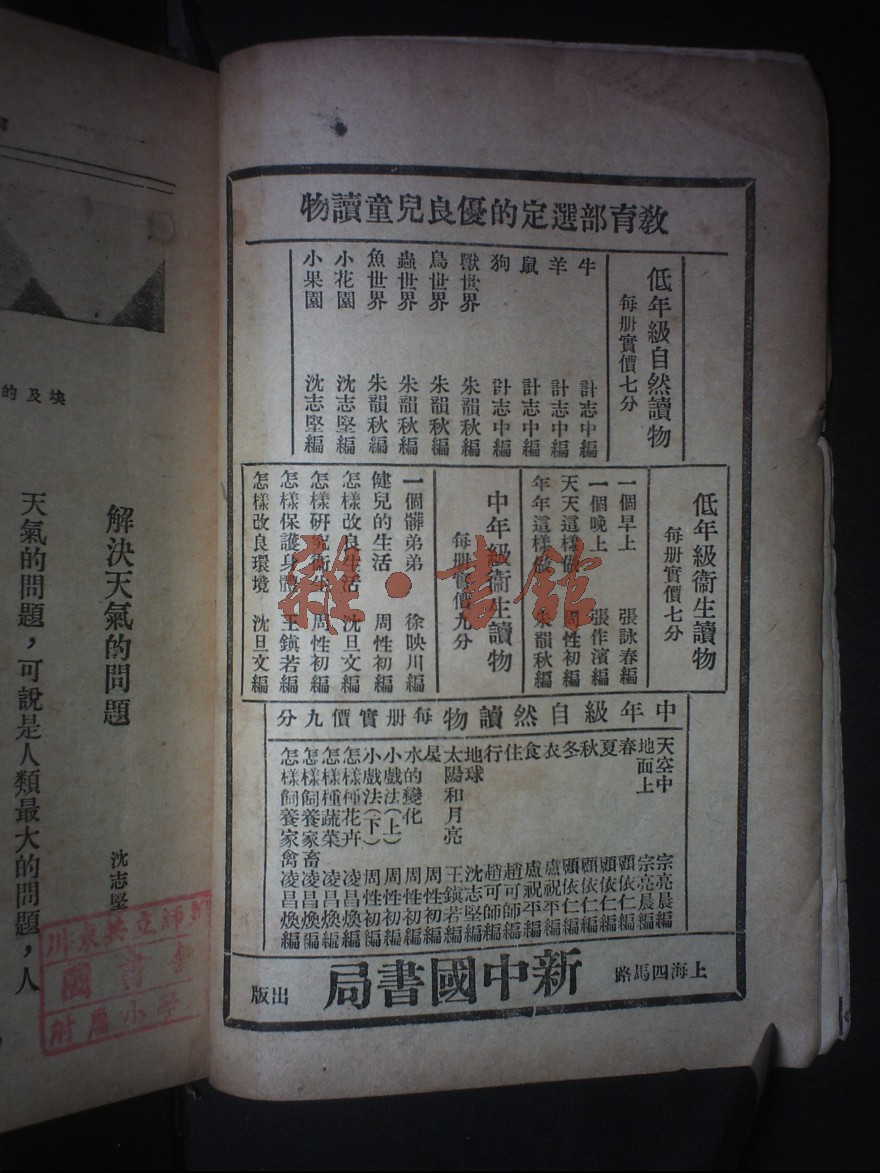 教育部選定的優良兒童讀物
低年級自然讀物
每册實價七分
牛 計志中編
羊 計志中編
鼠 計志中編
狗 計志中編
獸世界 朱韻秋編
鳥世界 朱韻秋編
蟲世界 朱韻秋編
魚世界 朱韻秋編
小花園 沈志堅編
小果園 沈志堅編
低年級衞生讀物
每册實價七分
一個早上 張詠春編
一個晚上 張作濱編
天天這樣做 周性初編
年年這樣做 朱韻秋編
中年級衞生讀物
每册實價九分
一個髒弟弟 徐映川編
健兒的生活 周性初編
怎樣改良生活 沈旦文編
怎樣研究衞生 周性初編
怎樣保護身體 王鎮若編
怎樣改良環境 沈旦文編
中年級自然讀物每册實價九分
天空中 宗亮晨編
地面上 宗亮晨編
春 顧依仁編
夏 顧依仁編
秋 顧依仁編
冬 顧依仁編
衣 盧祝平編
食 盧祝平編
住 趙可師編
行 趙可師編
地球 沈志堅編
太陽和月亮 王鎮若編
星 周性初編
水的變化 周性初編
小戲法(上) 周性初編
小戲法(下) 周性初編
怎樣種花卉 凌昌煥編
怎樣種蔬菜 凌昌煥編
怎樣飼養家畜 凌昌煥編
怎樣飼養家禽 凌昌煥編
上海四馬路
新中國書局
出版
埃及的
解決天氣的問題
沈志堅
天氣的問題，可說是人類最大的問題，人
川東共立師
圖書
附屬小學
雜·書館